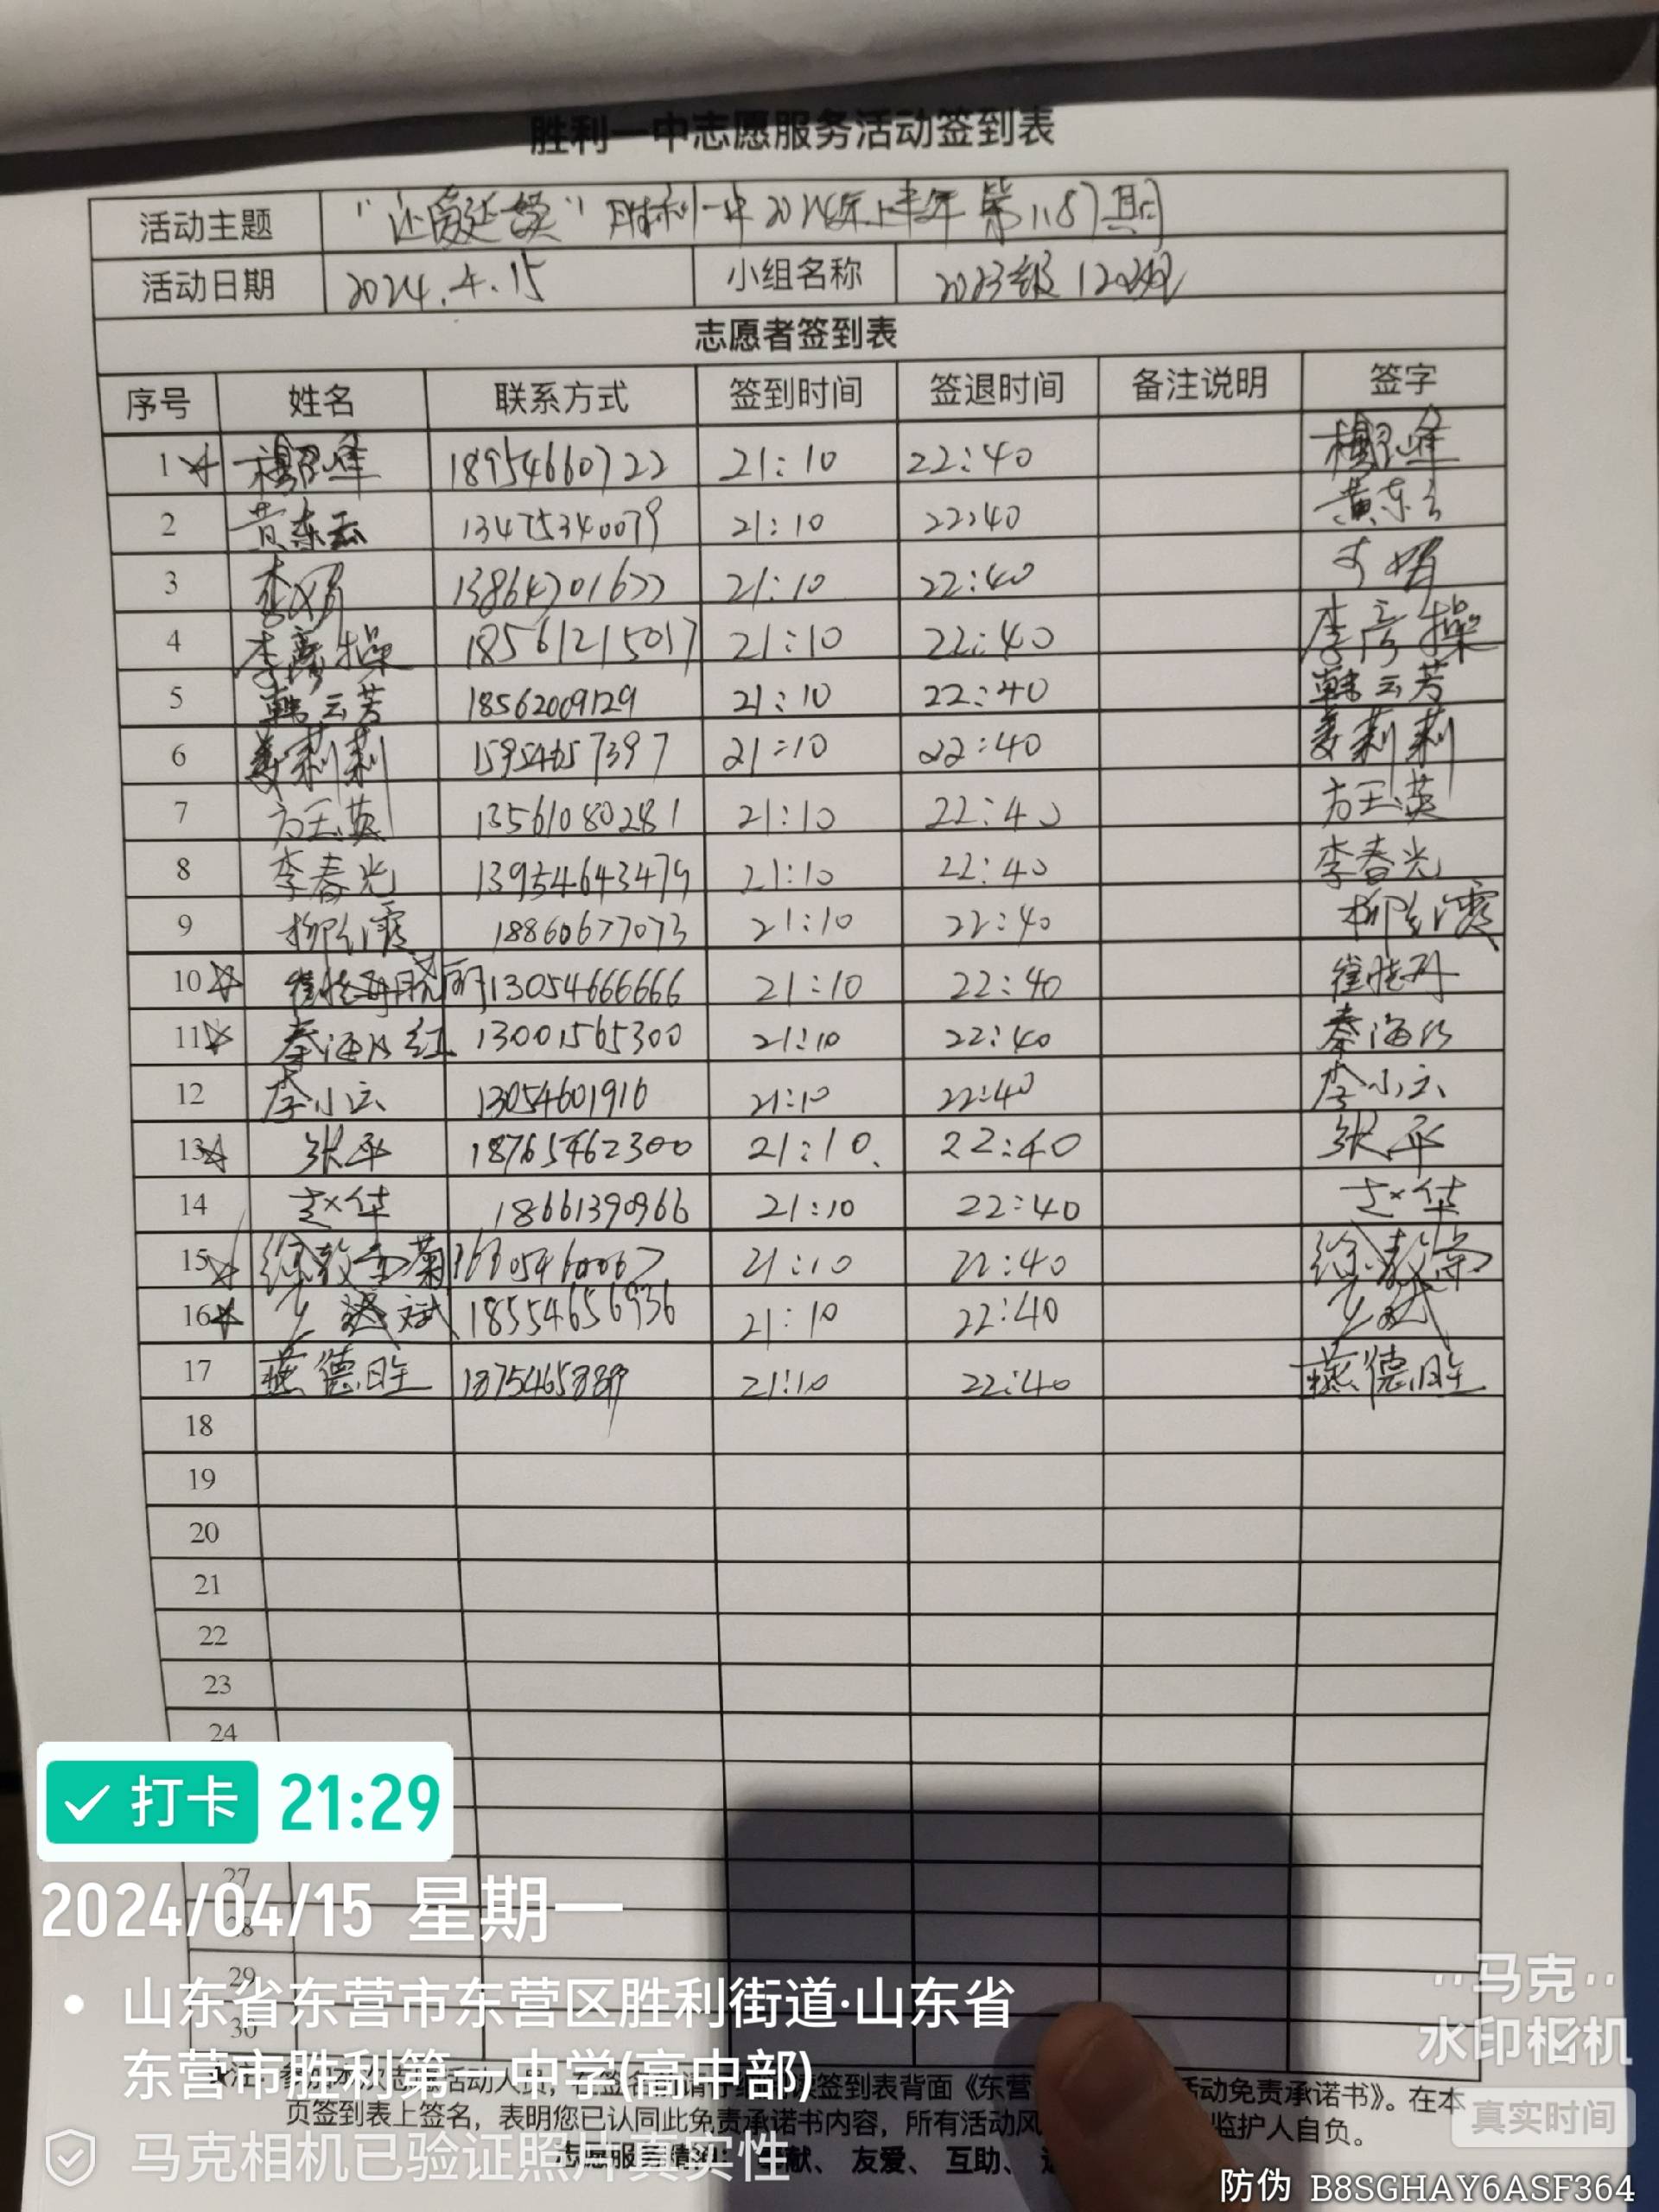 胜利一中志愿服务活动签到表
活动主题 "让爱延续" 胜利一中2024年上半年第1187期
活动日期 2024.4.15 小组名称 2023级
志愿者签到表
序号 姓名 联系方式 签到时间 签退时间 备注说明 签字
1 18954660722 21:10 22:40
2 黄东云 13475340079 21:10 22:40 黄东云
3 李娟 21:10 22:40 李娟
4 李彦操 18561215017 21:10 22:40 李彦操
5 韩云芳 18562009129 21:10 22:40 韩云芳
6 姜莉莉 15954657397 21:10 22:40 姜莉莉
7 方玉英 13561080281 21:10 22:40 方玉英
8 李春光 13954643479 21:10 22:40 李春光
9 柳红霞 18860677073 21:10 22:40 柳红霞
10 13054666666 21:10 22:40
11 秦海红 13001565300 21:10 22:40 秦海红
12 李小云 13054601916 21:10 22:40 李小云
13 张平 18765462300 21:10 22:40 张平
14 赵华 18661390966 21:10 22:40 赵华
15 21:10 22:40
16 18554656936 21:10 22:40
17 燕德胜 21:10 22:40 燕德胜
18
19
20
21
22
23
24
27
28
29
30
打卡 21:29
2024/04/15 星期一
山东省东营市东营区胜利街道·山东省
东营市胜利第一中学(高中部)
注：参加本次志愿活动人员，在签名前请仔细阅读签到表背面《东营 活动免责承诺书》。在本
页签到表上签名，表明您已认同此免责承诺书内容，所有活动风 监护人自负。
志愿服务精神：奉献、友爱、互助、
马克相机已验证照片真实性
马克
水印相机
真实时间
防伪 B8SGHAY6ASF364